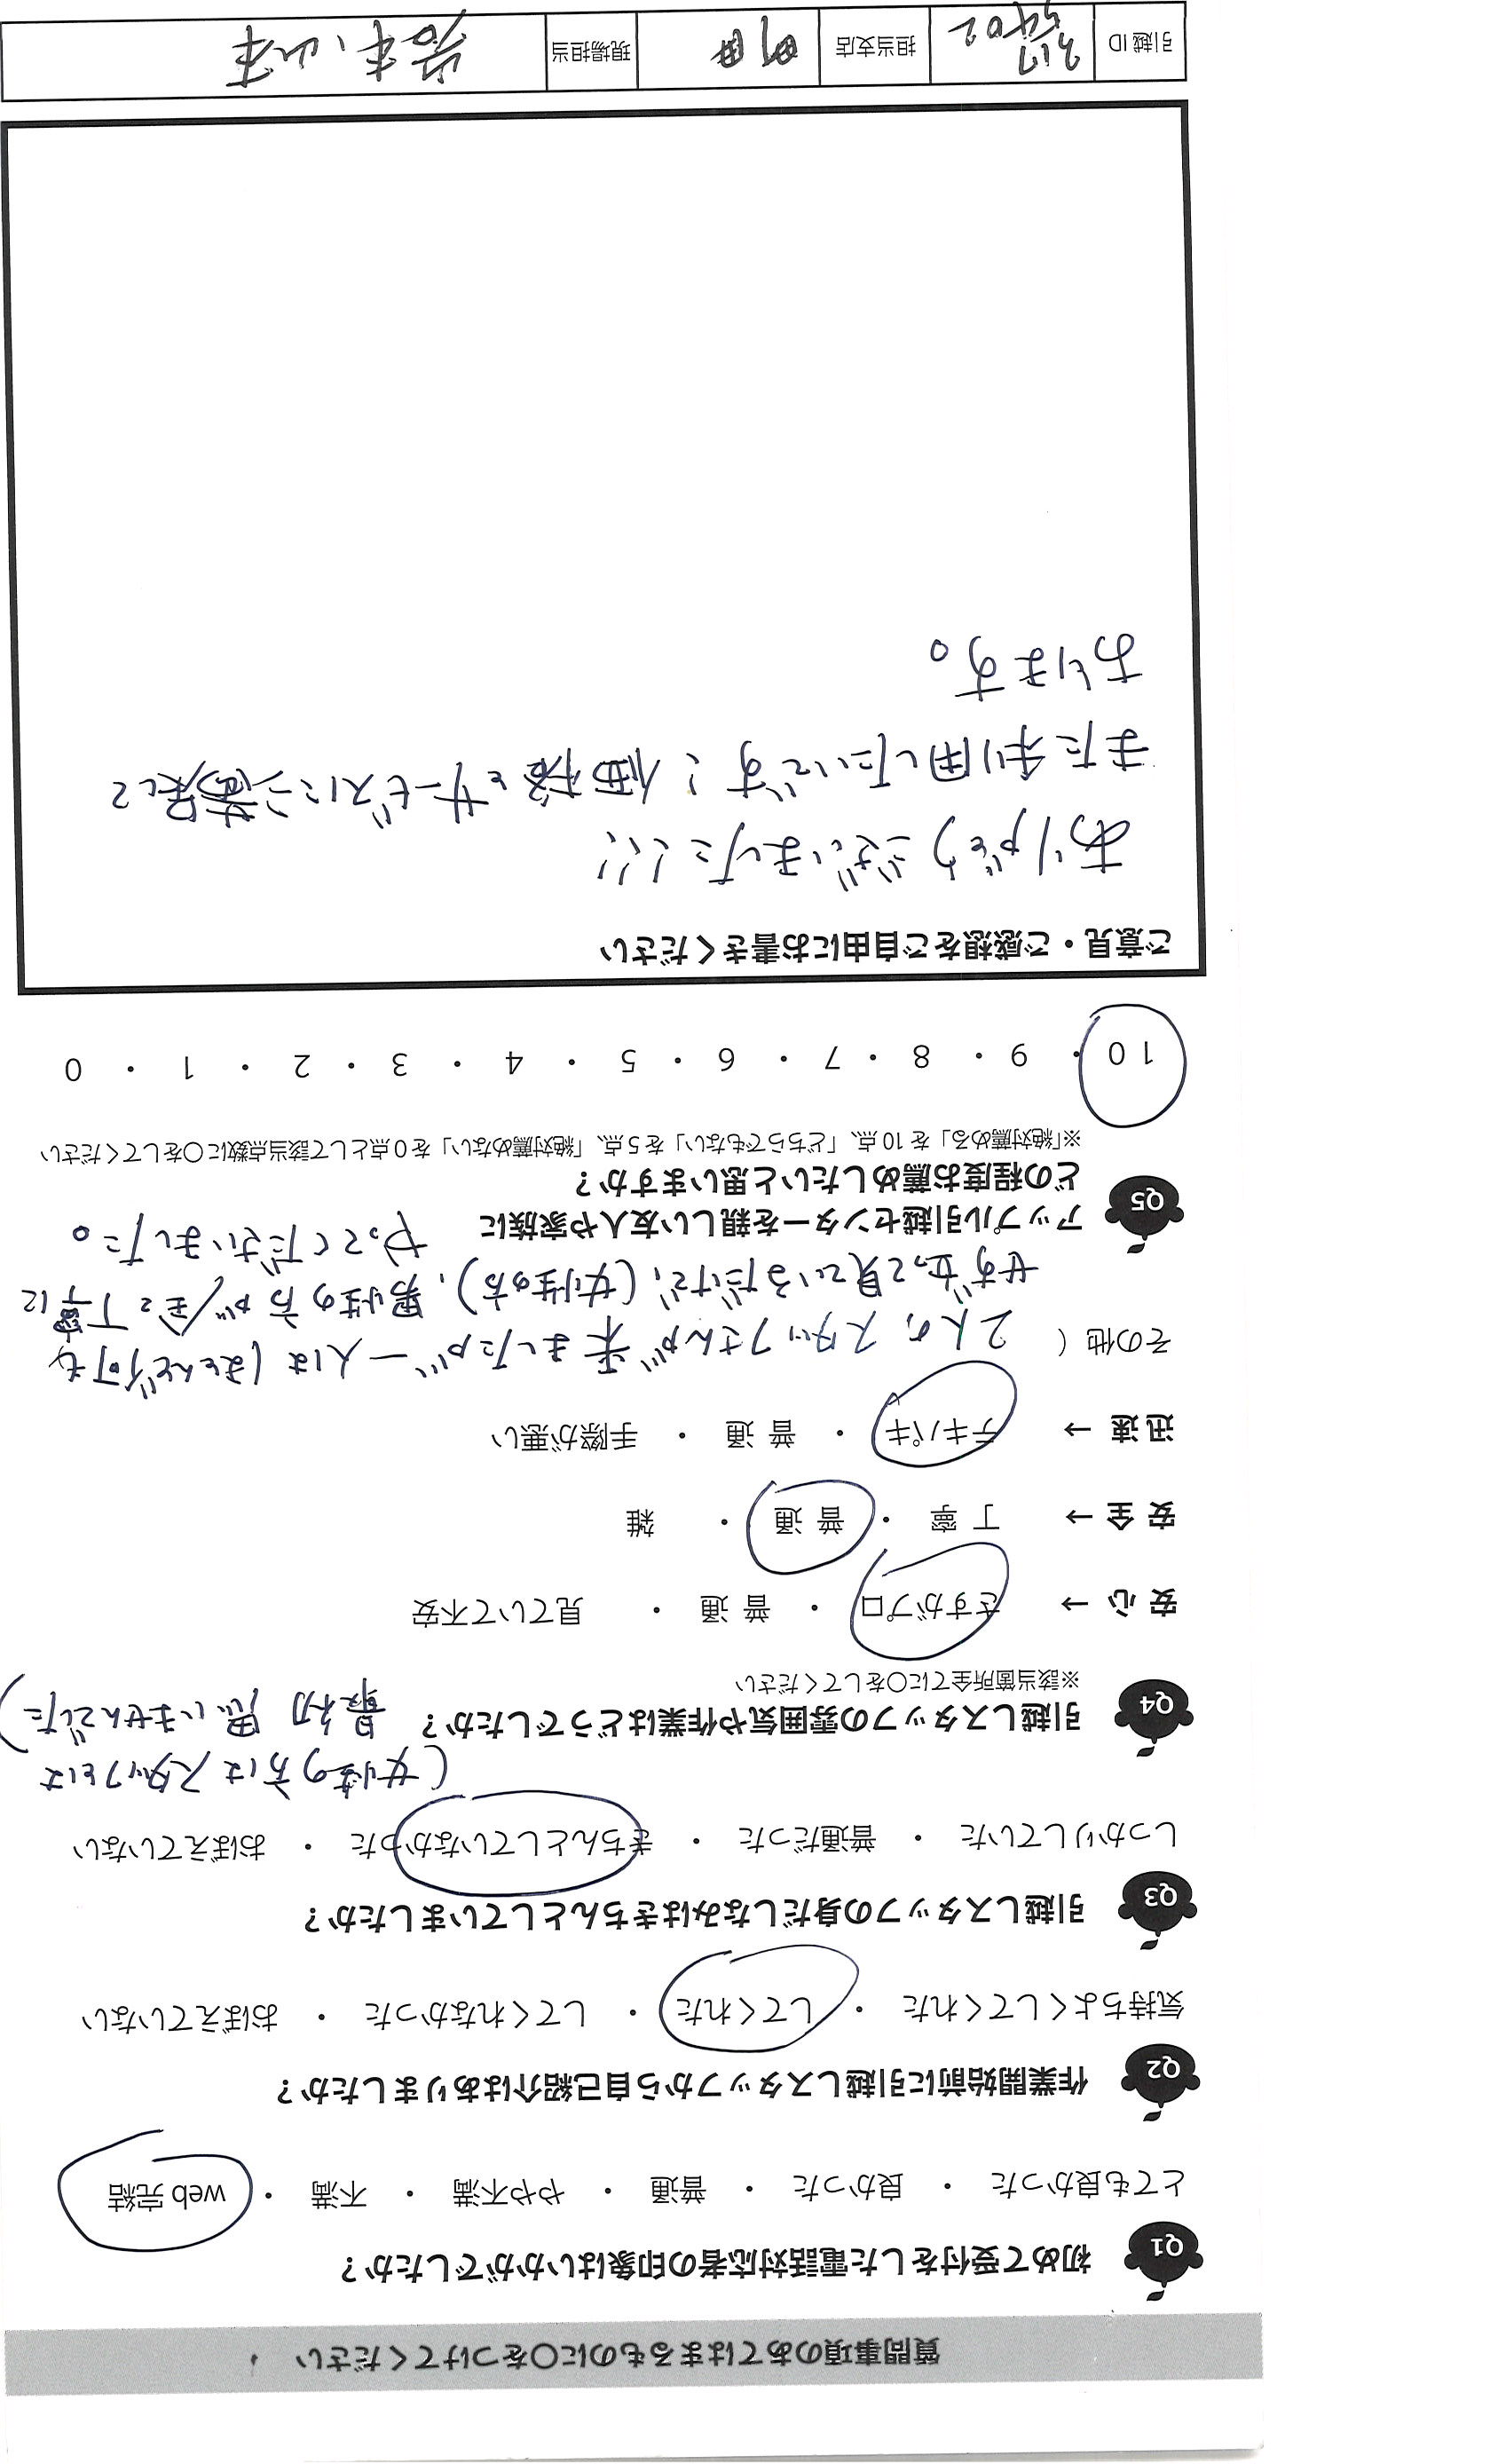 質問事項のあてはまるものに○をつけてください
Q1 初めて受付をした電話対応者の印象はいかがでしたか？
とても良かった ・ 良かった ・ 普通 ・ やや不満 ・ 不満 ・ web 完結
Q2 作業開始前に引越しスタッフから自己紹介はありましたか？
気持ちよくしてくれた ・ してくれた ・ してくれなかった ・ おぼえていない
Q3 引越しスタッフの身だしなみはきちんとしていましたか？
しっかりしていた ・ 普通だった ・ きちんとしていなかった ・ おぼえていない
(女性の方はスタッフとは
最初 思いませんでした)
Q4 引越しスタッフの雰囲気や作業はどうでしたか？
※該当箇所全てに○をしてください
安 心 → さすがプロ ・ 普 通 ・ 見ていて不安
安 全 → 丁 寧 ・ 普 通 ・ 雑
迅 速 → テキパキ ・ 普 通 ・ 手際が悪い
その他 ( 2人の、スタッフさんが来ましたが一人はほとんど何も
せず立って見ているだけで、(女性の方)、男性の方が全て丁寧に
やってくださいました。
Q5 アップル引越センターを親しい友人や家族に
どの程度お薦めしたいと思いますか？
※「絶対薦める」を 10 点、「どちらでもない」を 5 点、「絶対薦めない」を 0 点として該当点数に○をしてください
10 ・ 9 ・ 8 ・ 7 ・ 6 ・ 5 ・ 4 ・ 3 ・ 2 ・ 1 ・ 0
ご意見・ご感想をご自由にお書きください
ありがとうございました!!!
また利用したいです！価格とサービスに満足して
おります。
引越 ID 317 5402 担当支店 町田 現場担当 岩本、山本